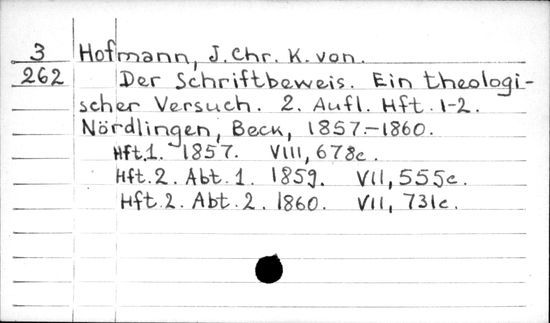 3 Hofmann, J. Chr. K. von.
262 Der Schriftbeweis. Ein theologi-
scher Versuch. 2. Aufl. Hft. 1-2.
Nördlingen, Beck, 1857.-1860.
Hft. 1. 1857. VIII, 678c.
Hft. 2. Abt. 1. 1859. VII, 555c.
Hft. 2. Abt. 2. 1860. VII, 731c.